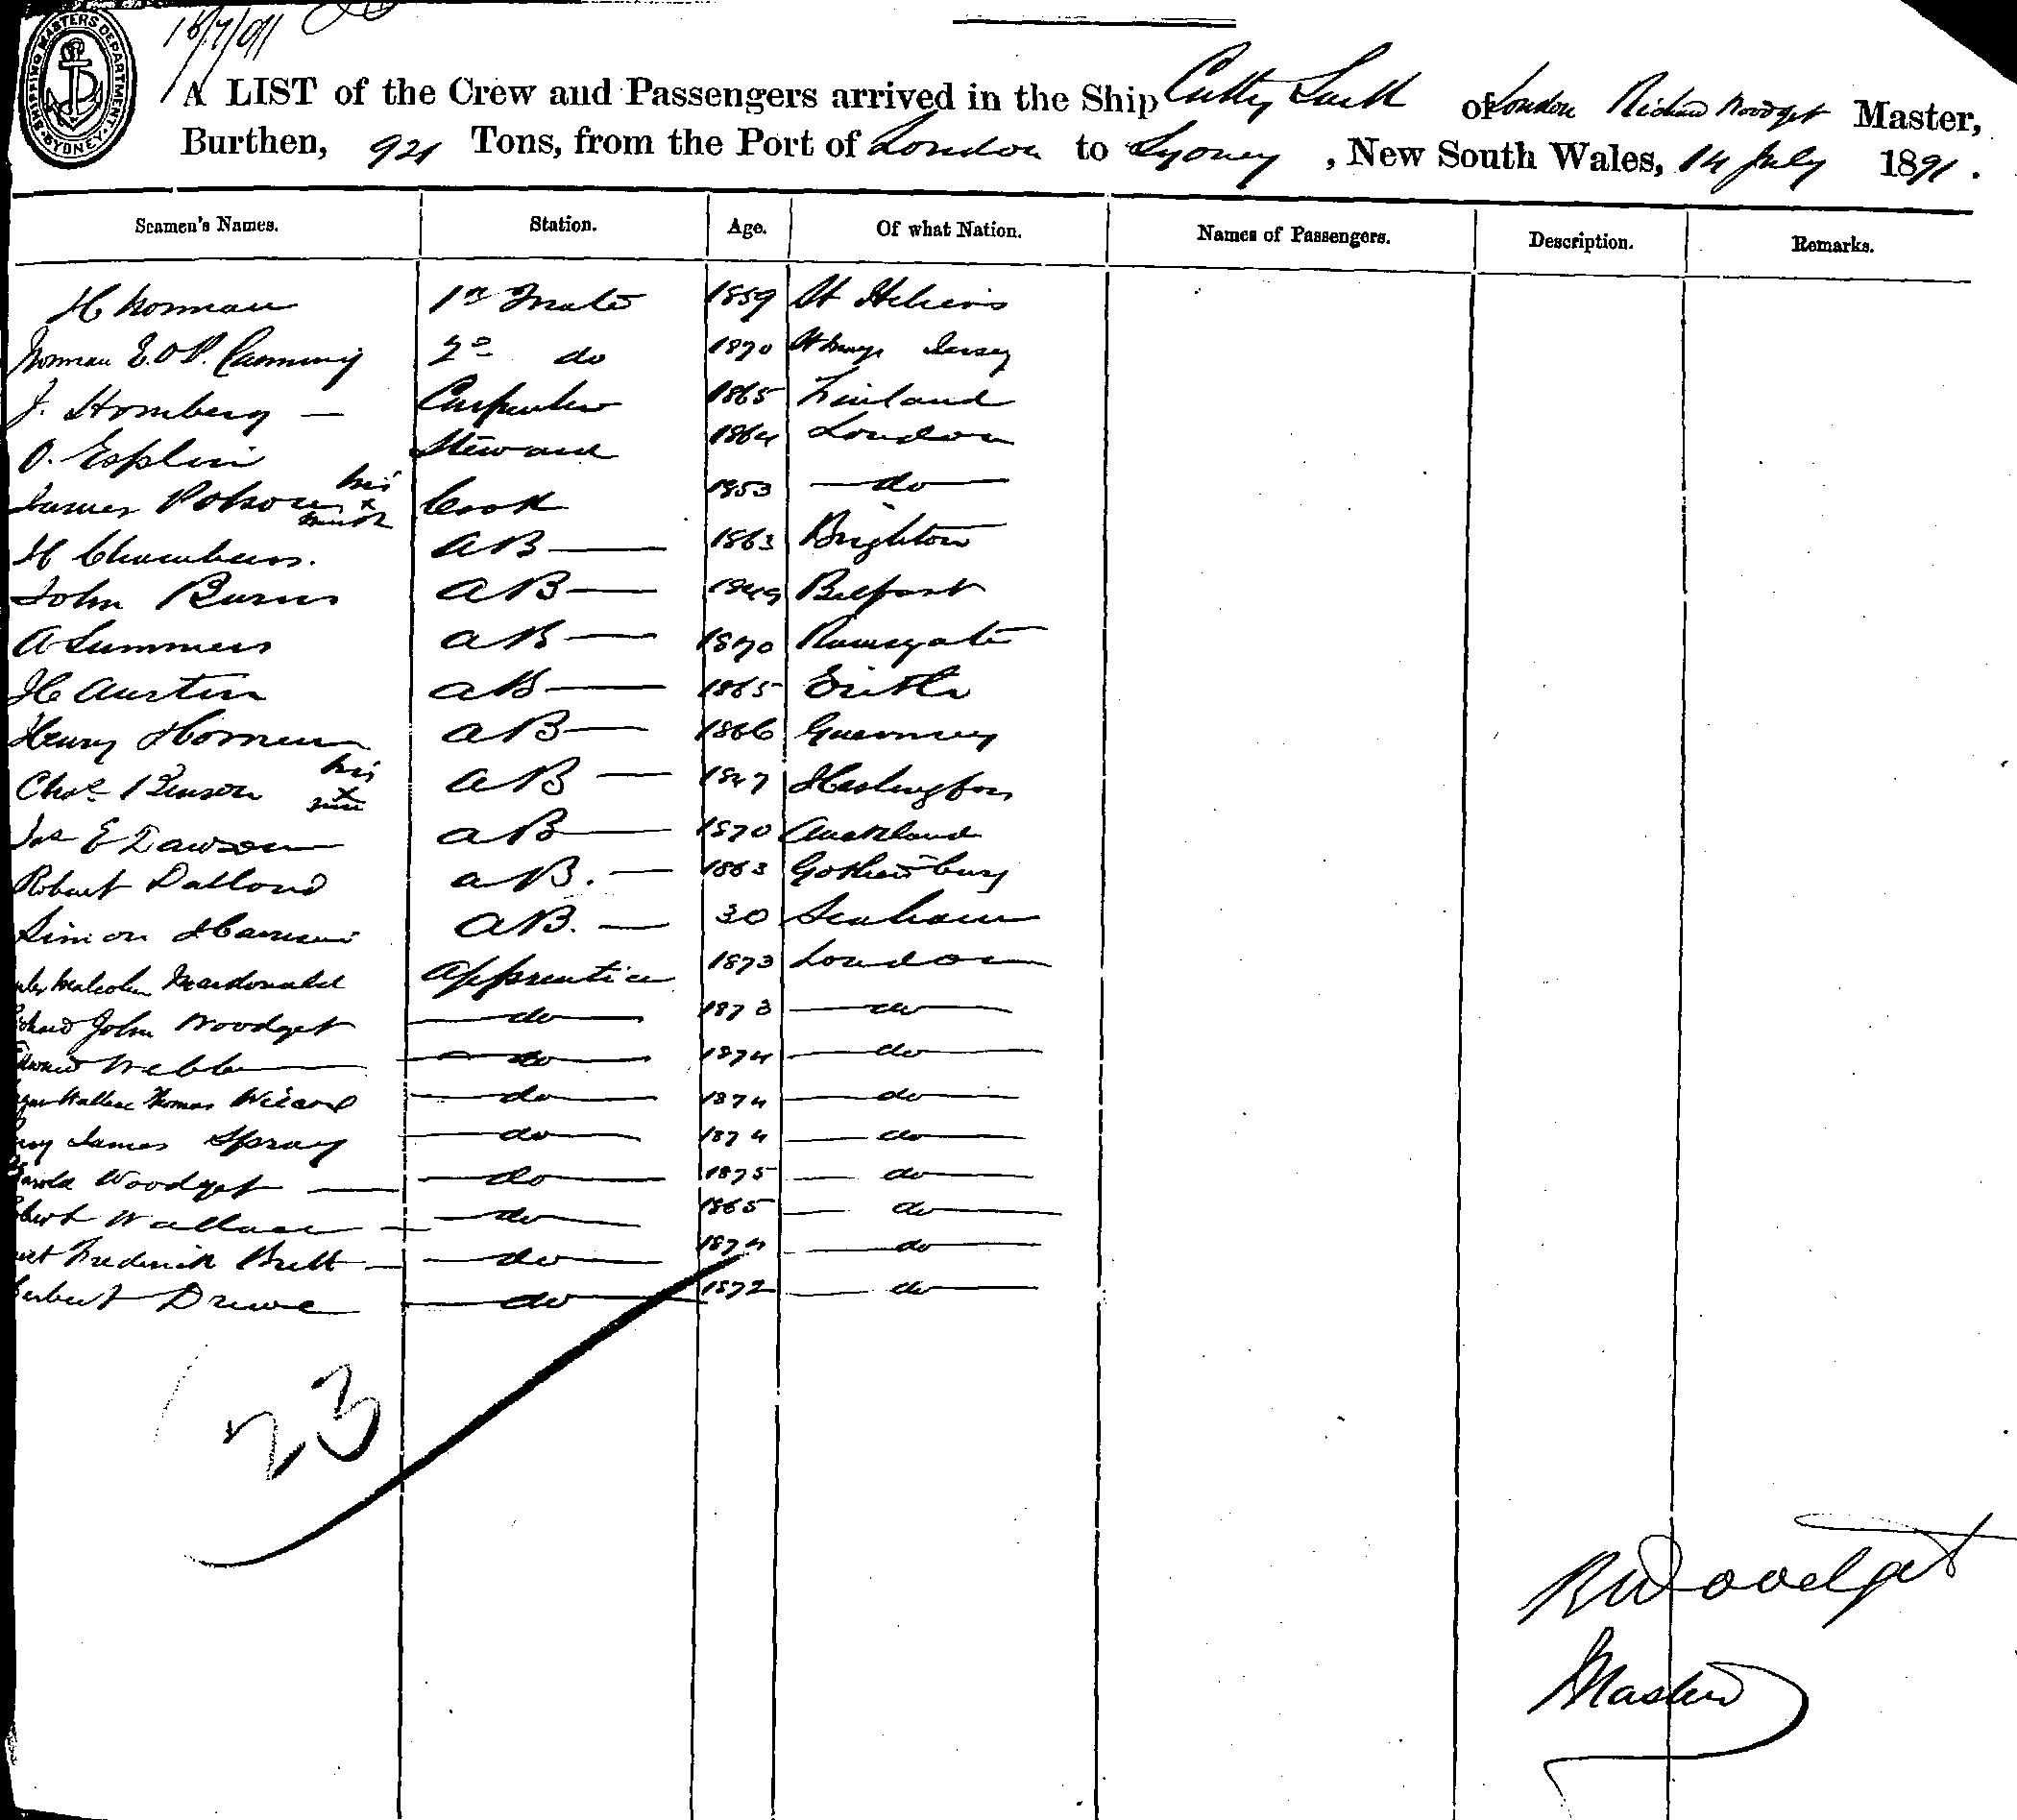 SHIPPING MASTERS DEPARTMENT. SYDNEY
18/7/91
A LIST of the Crew and Passengers arrived in the Ship Cutty Sark of London Richard Woodget Master,
Burthen, 921 Tons, from the Port of London to Sydney, New South Wales, 14 July 1891.
Seamen's Names. Station. Age. Of what Nation. Names of Passengers. Description. Remarks.
1st Mate 1859 St Heliers
Norman 2d do 1870 Jersey
J. Holmberg — Carpenter 1865 Finland
O. Esplin Steward 1864 London
James Robson his x mark Cook 1853 do
H Chambers. AB 1863 Brighton
John Burns AB 1849 Belfast
A Summers AB 1870 Ramsgate
H Austin AB 1865 Erith
Henry AB 1866 Guernsey
Chas Benson his x AB 1847
Jas E Dawson AB 1870 Auckland
Robert AB. 1863 Gothenburg
Simon AB. 30 Seaham
Malcolm Macdonald Apprentice 1873 London
John Woodget do 1873 do
Webb do 1874 do
Wallace Thomas do 1874 do
James Spray do 1874 do
Harold Woodget do 1875 do
Wallace do 1865 do
Frederick Brett do 1874 do
Herbert Drewe do 1872 do
23
R Woodget
Master